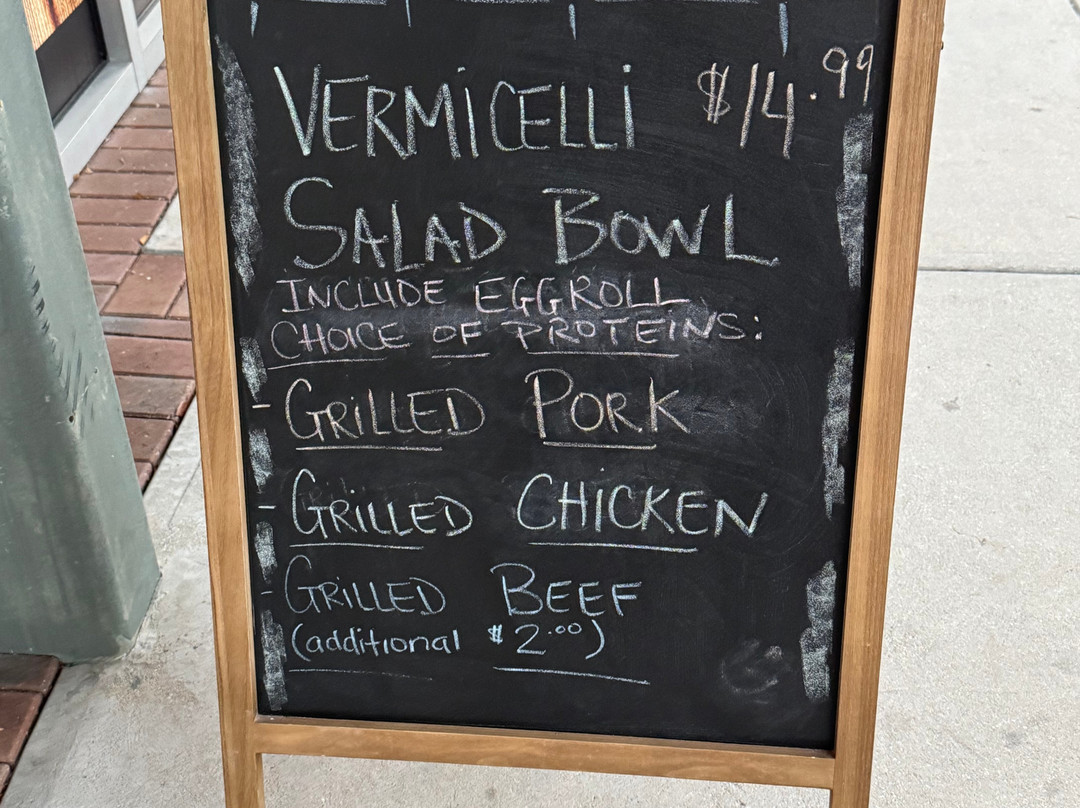 VERMiCELLi $14.99
SALAD BOWL
INCLUDE EGGROLL
CHOICE OF PROTEINS:
- GRiLLED PORK
- GRiLLED CHiCKEN
- GRiLLED BEEF
(additional $2.00)